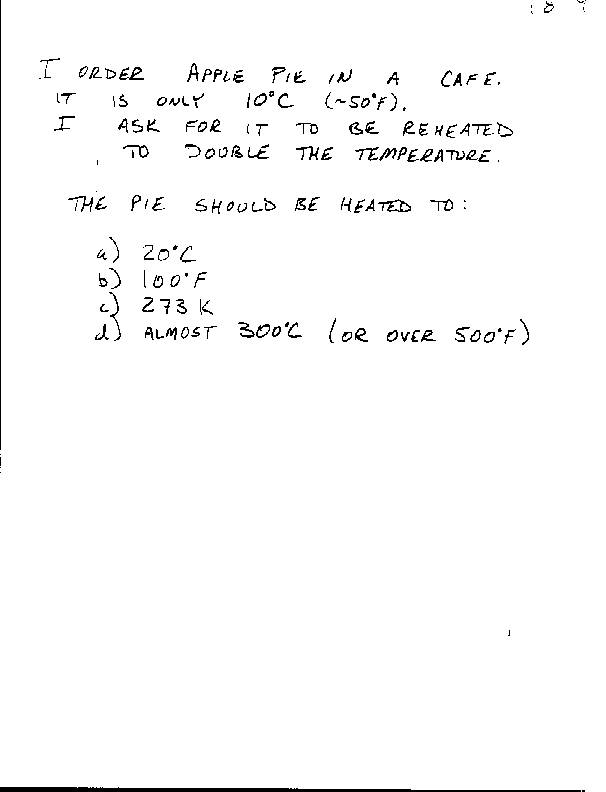 I ORDER APPLE PIE IN A CAFE.
IT IS ONLY 10°C (~50°F).
I ASK FOR IT TO BE REHEATED
TO DOUBLE THE TEMPERATURE.
THE PIE SHOULD BE HEATED TO:
a) 20°C
b) 100°F
c) 273 K
d) ALMOST 300°C (OR OVER 500°F)